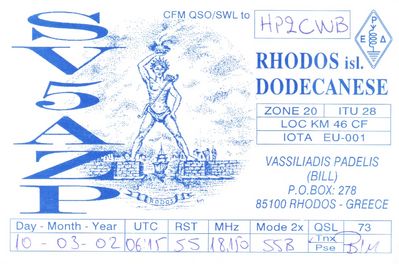 CFM QSO/SWL to HP2CWB
SV5AZP
RHODOS isl.
DODECANESE
ZONE 20 ITU 28
LOC KM 46 CF
IOTA EU-001
VASSILIADIS PADELIS
(BILL)
P.O.BOX: 278
85100 RHODOS - GREECE
RHODOS
Day - Month - Year UTC RST MHz Mode 2x QSL 73
10 - 03 - 02 0615 55 18,150 SSB Tnx Bill
Pse